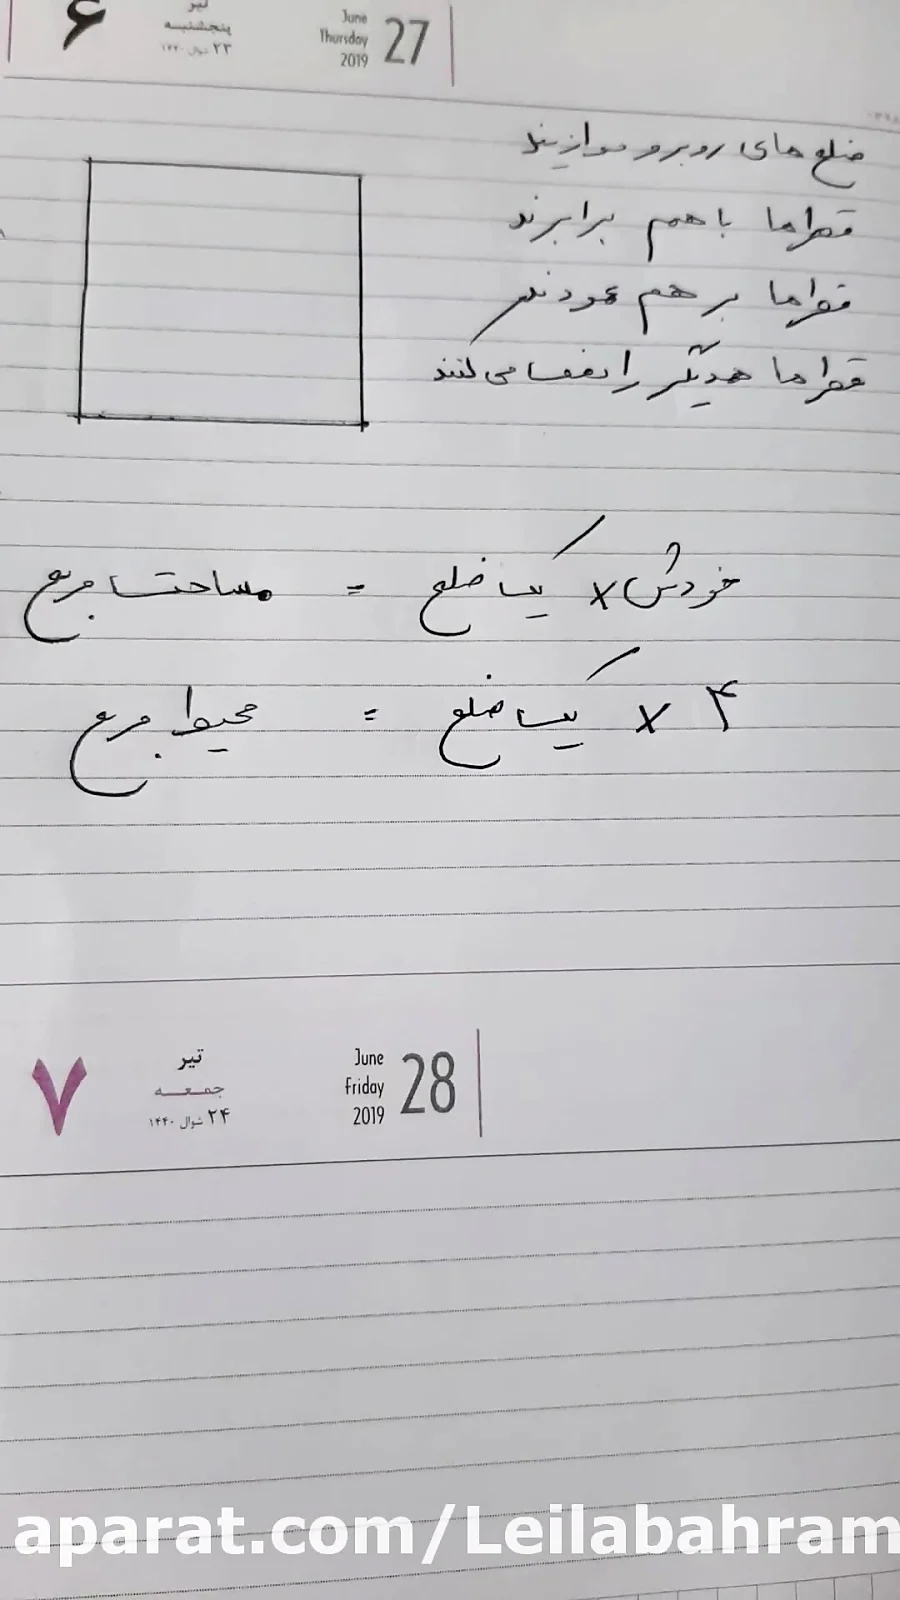 ۶
تیر
پنجشنبه
۲۳ شوال ۱۴۴۰
June
Thursday
2019
27
ضلع های روبرو موازیند
قطرها با هم برابرند
قطرها بر هم عمودند
قطرها همدیگر را نصف می کنند
خودش × یک ضلع = مساحت مربع
۴ × یک ضلع = محیط مربع
۷
تیر
جمعه
۲۴ شوال ۱۴۴۰
June
Friday
2019
28
aparat.com/Leilabahram